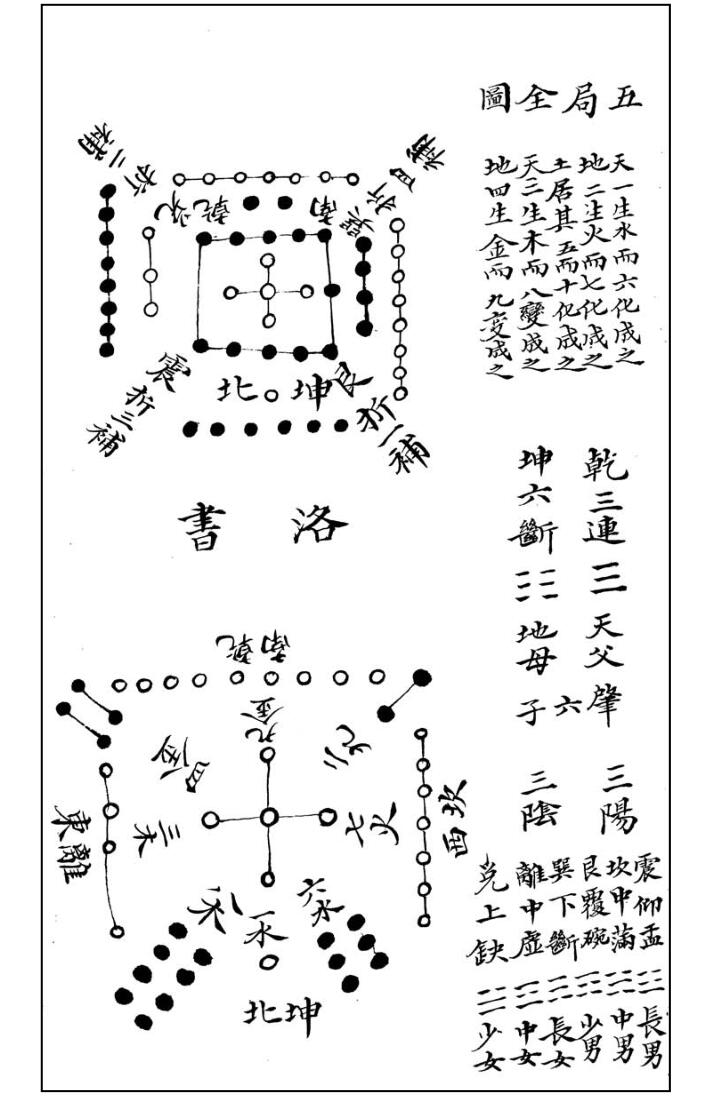 五局全圖
天一生水而六化成之
地二生火而七化成之
土居其五而十化成之
天三生木而八變成之
地四生金而九變成之
乾三連☰天父肇
坤六斷☷地母
六子
三陽
三陰
震仰盂☳長男
坎中滿☵中男
艮覆碗☶少男
巽下斷☴長女
離中虛☲中女
兌上缺☱少女
補四折巽
補二折
南乾兌
震折三補
北坤艮
折一補
洛書
南乾
九金
四金
三木
東離
七火
西坎
六水
一水
北坤